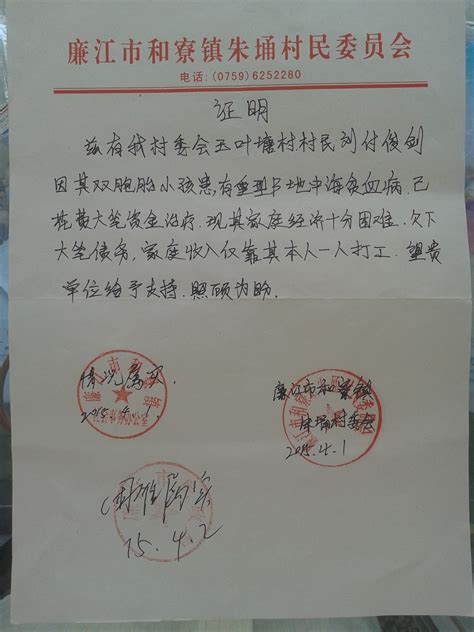 廉江市和寮镇朱埇村民委员会
电话:(0759)6252280
证明
兹有我村委会玉叶塘村村民刘付俊剑
因其双胞胎小孩患有重型β地中海贫血病.已
花费大笔资金治疗.现其家庭经济十分困难.欠下
大笔债务,家庭收入仅靠其本人一人打工.望贵
单位给予支持.照顾为盼.
情况属实.
2015.4.1
廉江市和寮镇
朱埇村委会
2015.4.1
情况属实
15.4.2